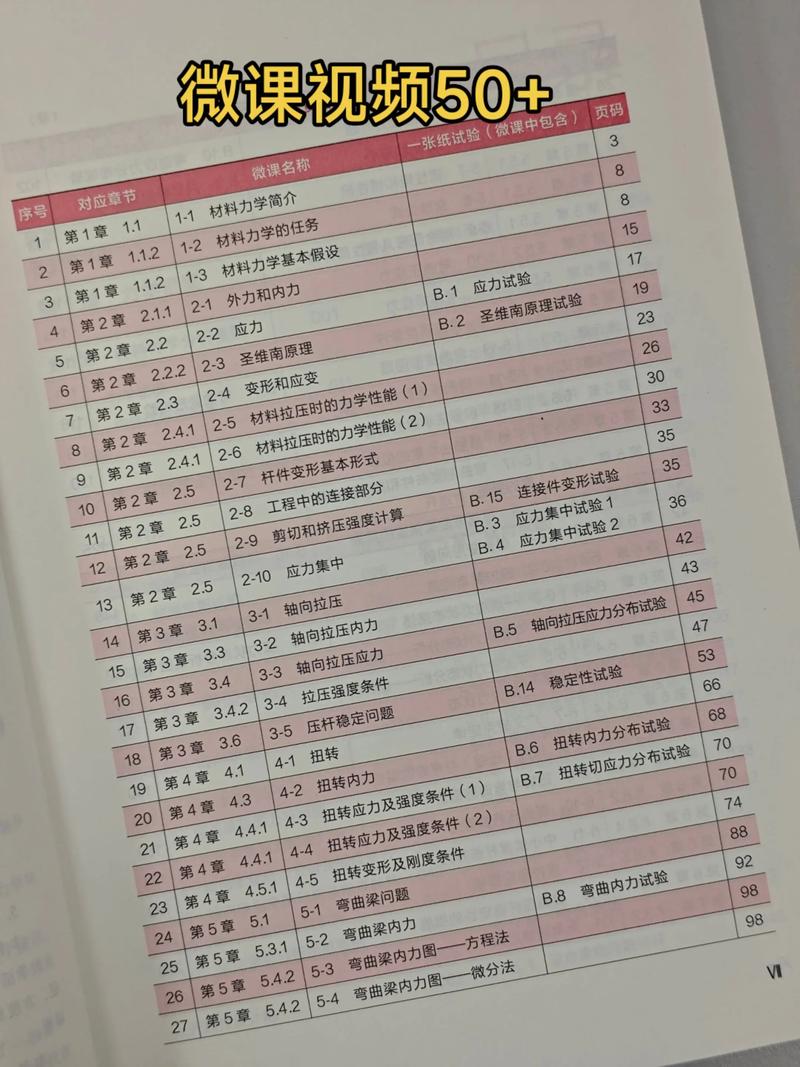 微课视频50+
序号 对应章节 微课名称 一张纸试验（微课中包含） 页码
1 第1章 1.1 1-1 材料力学简介 3
2 第1章 1.1.2 1-2 材料力学的任务 8
3 第1章 1.1.2 1-3 材料力学基本假设 8
4 第2章 2.1.1 2-1 外力和内力 15
5 第2章 2.2 2-2 应力 B.1 应力试验 17
6 第2章 2.2.2 2-3 圣维南原理 B.2 圣维南原理试验 19
7 第2章 2.3 2-4 变形和应变 23
8 第2章 2.4.1 2-5 材料拉压时的力学性能（1） 26
9 第2章 2.4.1 2-6 材料拉压时的力学性能（2） 30
10 第2章 2.5 2-7 杆件变形基本形式 33
11 第2章 2.5 2-8 工程中的连接部分 35
12 第2章 2.5 2-9 剪切和挤压强度计算 B.15 连接件变形试验 35
13 第2章 2.5 2-10 应力集中 B.3 应力集中试验1 36
B.4 应力集中试验2
14 第3章 3.1 3-1 轴向拉压 42
15 第3章 3.3 3-2 轴向拉压内力 43
16 第3章 3.4 3-3 轴向拉压应力 B.5 轴向拉压应力分布试验 45
17 第3章 3.4.2 3-4 拉压强度条件 47
18 第3章 3.6 3-5 压杆稳定问题 B.14 稳定性试验 53
19 第4章 4.1 4-1 扭转 66
20 第4章 4.3 4-2 扭转内力 B.6 扭转内力分布试验 68
21 第4章 4.4.1 4-3 扭转应力及强度条件（1） B.7 扭转切应力分布试验 70
22 第4章 4.4.1 4-4 扭转应力及强度条件（2） 70
23 第4章 4.5.1 4-5 扭转变形及刚度条件 74
24 第5章 5.1 5-1 弯曲梁问题 88
25 第5章 5.3.1 5-2 弯曲梁内力 B.8 弯曲内力试验 92
26 第5章 5.4.2 5-3 弯曲梁内力图——方程法 98
27 第5章 5.4.2 5-4 弯曲梁内力图——微分法 98
Ⅶ